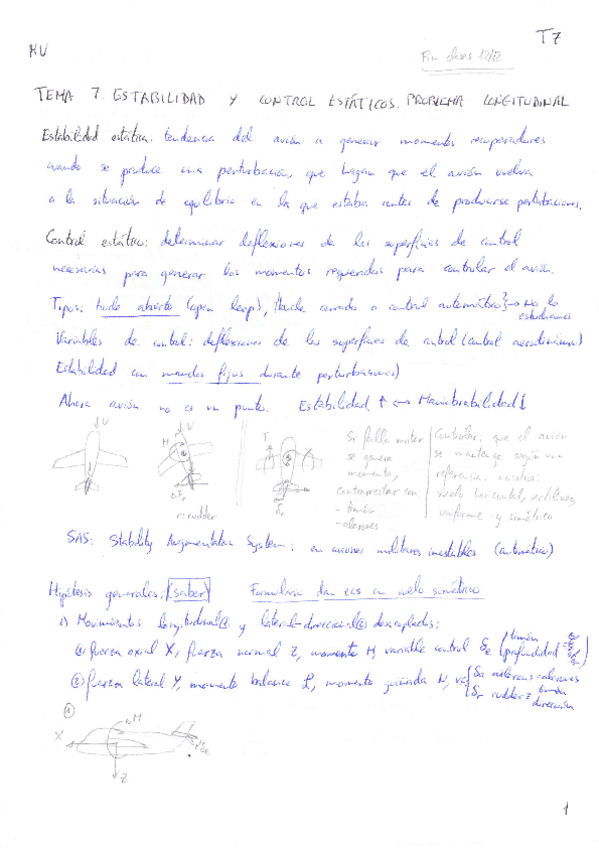 T7
MV
Fin clases 12/12
TEMA 7. ESTABILIDAD Y CONTROL ESTÁTICOS. PROBLEMA LONGITUDINAL
Estabilidad estática: tendencia del avión a generar momentos recuperadores
cuando se produce una perturbación, que hagan que el avión vuelva
a la situación de equilibrio en la que estaba antes de producirse perturbaciones.
Control estático: determinar deflexiones de las superficies de control
necesarias para generar los momentos requeridos para controlar el avión.
Tipos: bucle abierto (open loop), {bucle cerrado o control automático} → No lo
estudiamos
Variables de control: deflexiones de las superficies de control (control aerodinámico)
Estabilidad con mandos fijos durante perturbaciones)
Ahora avión no es un punto. Estabilidad ↑ ↔ Maniobrabilidad ↓
V
V
M
T
r: rudder
δr
Si falla motor
se genera
momento,
contrarrestar con
- timón
- alerones
Controlar: que el avión
se mantenga según una
referencia, nosotros:
vuelo horizontal, rectilíneo,
uniforme y simétrico
SAS: Stability Augmentation System: en aviones militares inestables (automático)
Hipótesis generales: (saber) Formulario dan ecs en vuelo simétrico
1) Movimientos longitudinal① y lateral-direccional② desacoplados:
① fuerza axial X, fuerza normal Z, momento M, variable control δe (timón profundidad)
② fuerza lateral Y, momento balance L, momento guiñada N, vc {δa ailerons=alerones
δr rudder=timón
dirección
①
X
M
Z
1